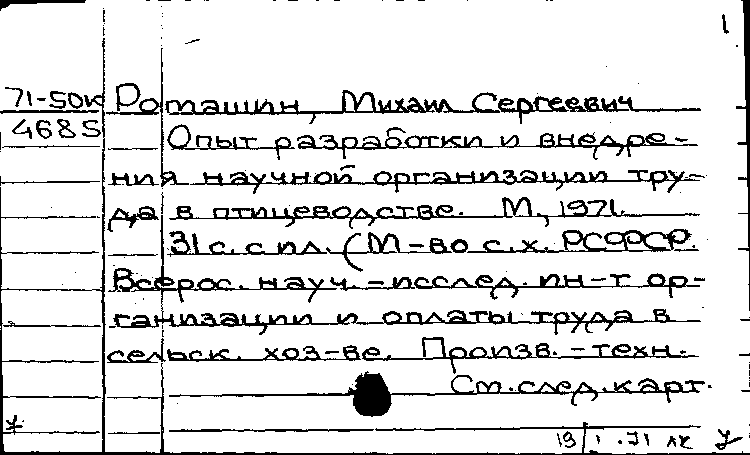 1
71-50к Ромашин, Михаил Сергеевич
4685 Опыт разработки и внедре-
ния научной организации тру-
да в птицеводстве. М., 1971.
31 с. с ил. (М-во с.х. РСФСР.
Всерос. науч.-исслед. ин-т ор-
ганизации и оплаты труда в
сельск. хоз-ве. Произв.-техн.
См. след. карт.